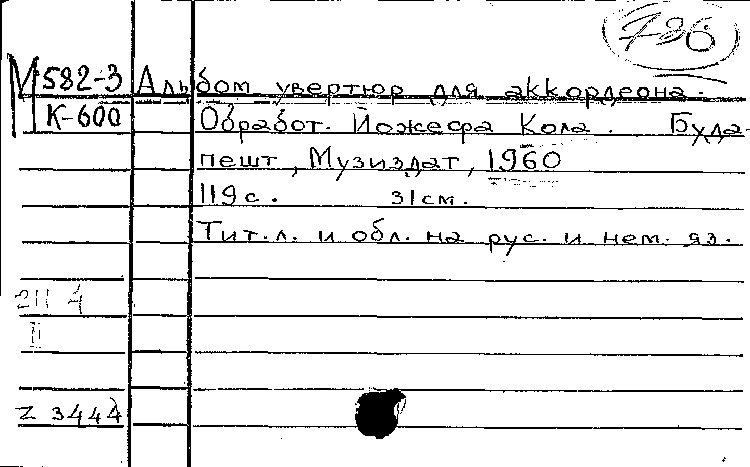 736
М 582-3 Альбом увертюр для аккордеона.
К-600 Обработ. Йожефа Кола. Буда-
пешт, Музиздат, 1960
119 с. 31 см.
Тит. л. и обл. на рус. и нем. яз.
211 4
II
Z 3444